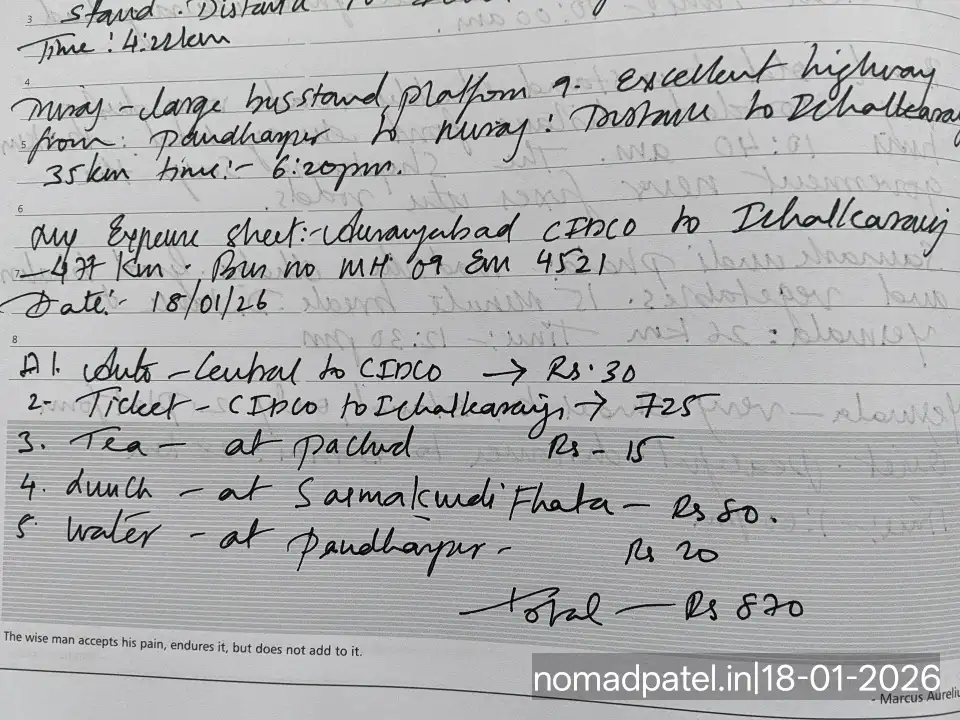 3 stand. Distance
Time: 4:22km
4
Miraj - large bus stand, platform 9. Excellent highway
5 from: Pandharpur to Miraj: Distance to Ichalkaranji
35km time:- 6:20pm.
6
My Expense sheet:- Aurangabad CIDCO to Ichalkaranji
7 - 477 km. Bus no MH 09 EM 4521
Date:- 18/01/26
8
A1. Auto - Central to CIDCO → Rs. 30
2- Ticket - CIDCO to Ichalkaranji → 725
3. Tea - at Pachod Rs - 15
4. Lunch - at Sarmakundi Fhata - Rs 80.
5. Water - at Pandharpur - Rs 20
Total - Rs 870
The wise man accepts his pain, endures it, but does not add to it.
nomadpatel.in|18-01-2026
- Marcus Aureliu